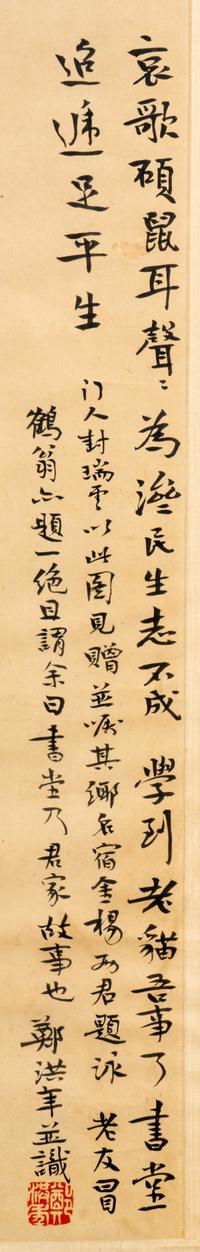 哀歌碩鼠耳聲〻為澹民生志不成學到老貓吾事了書堂
迢遞足平生
门人封瑞雲以此圖見贈並嘱其鄉名宿金楊两君題詠老友冒
鶴翁亦題一绝且謂余曰書堂乃君家故事也鄭洪年並識